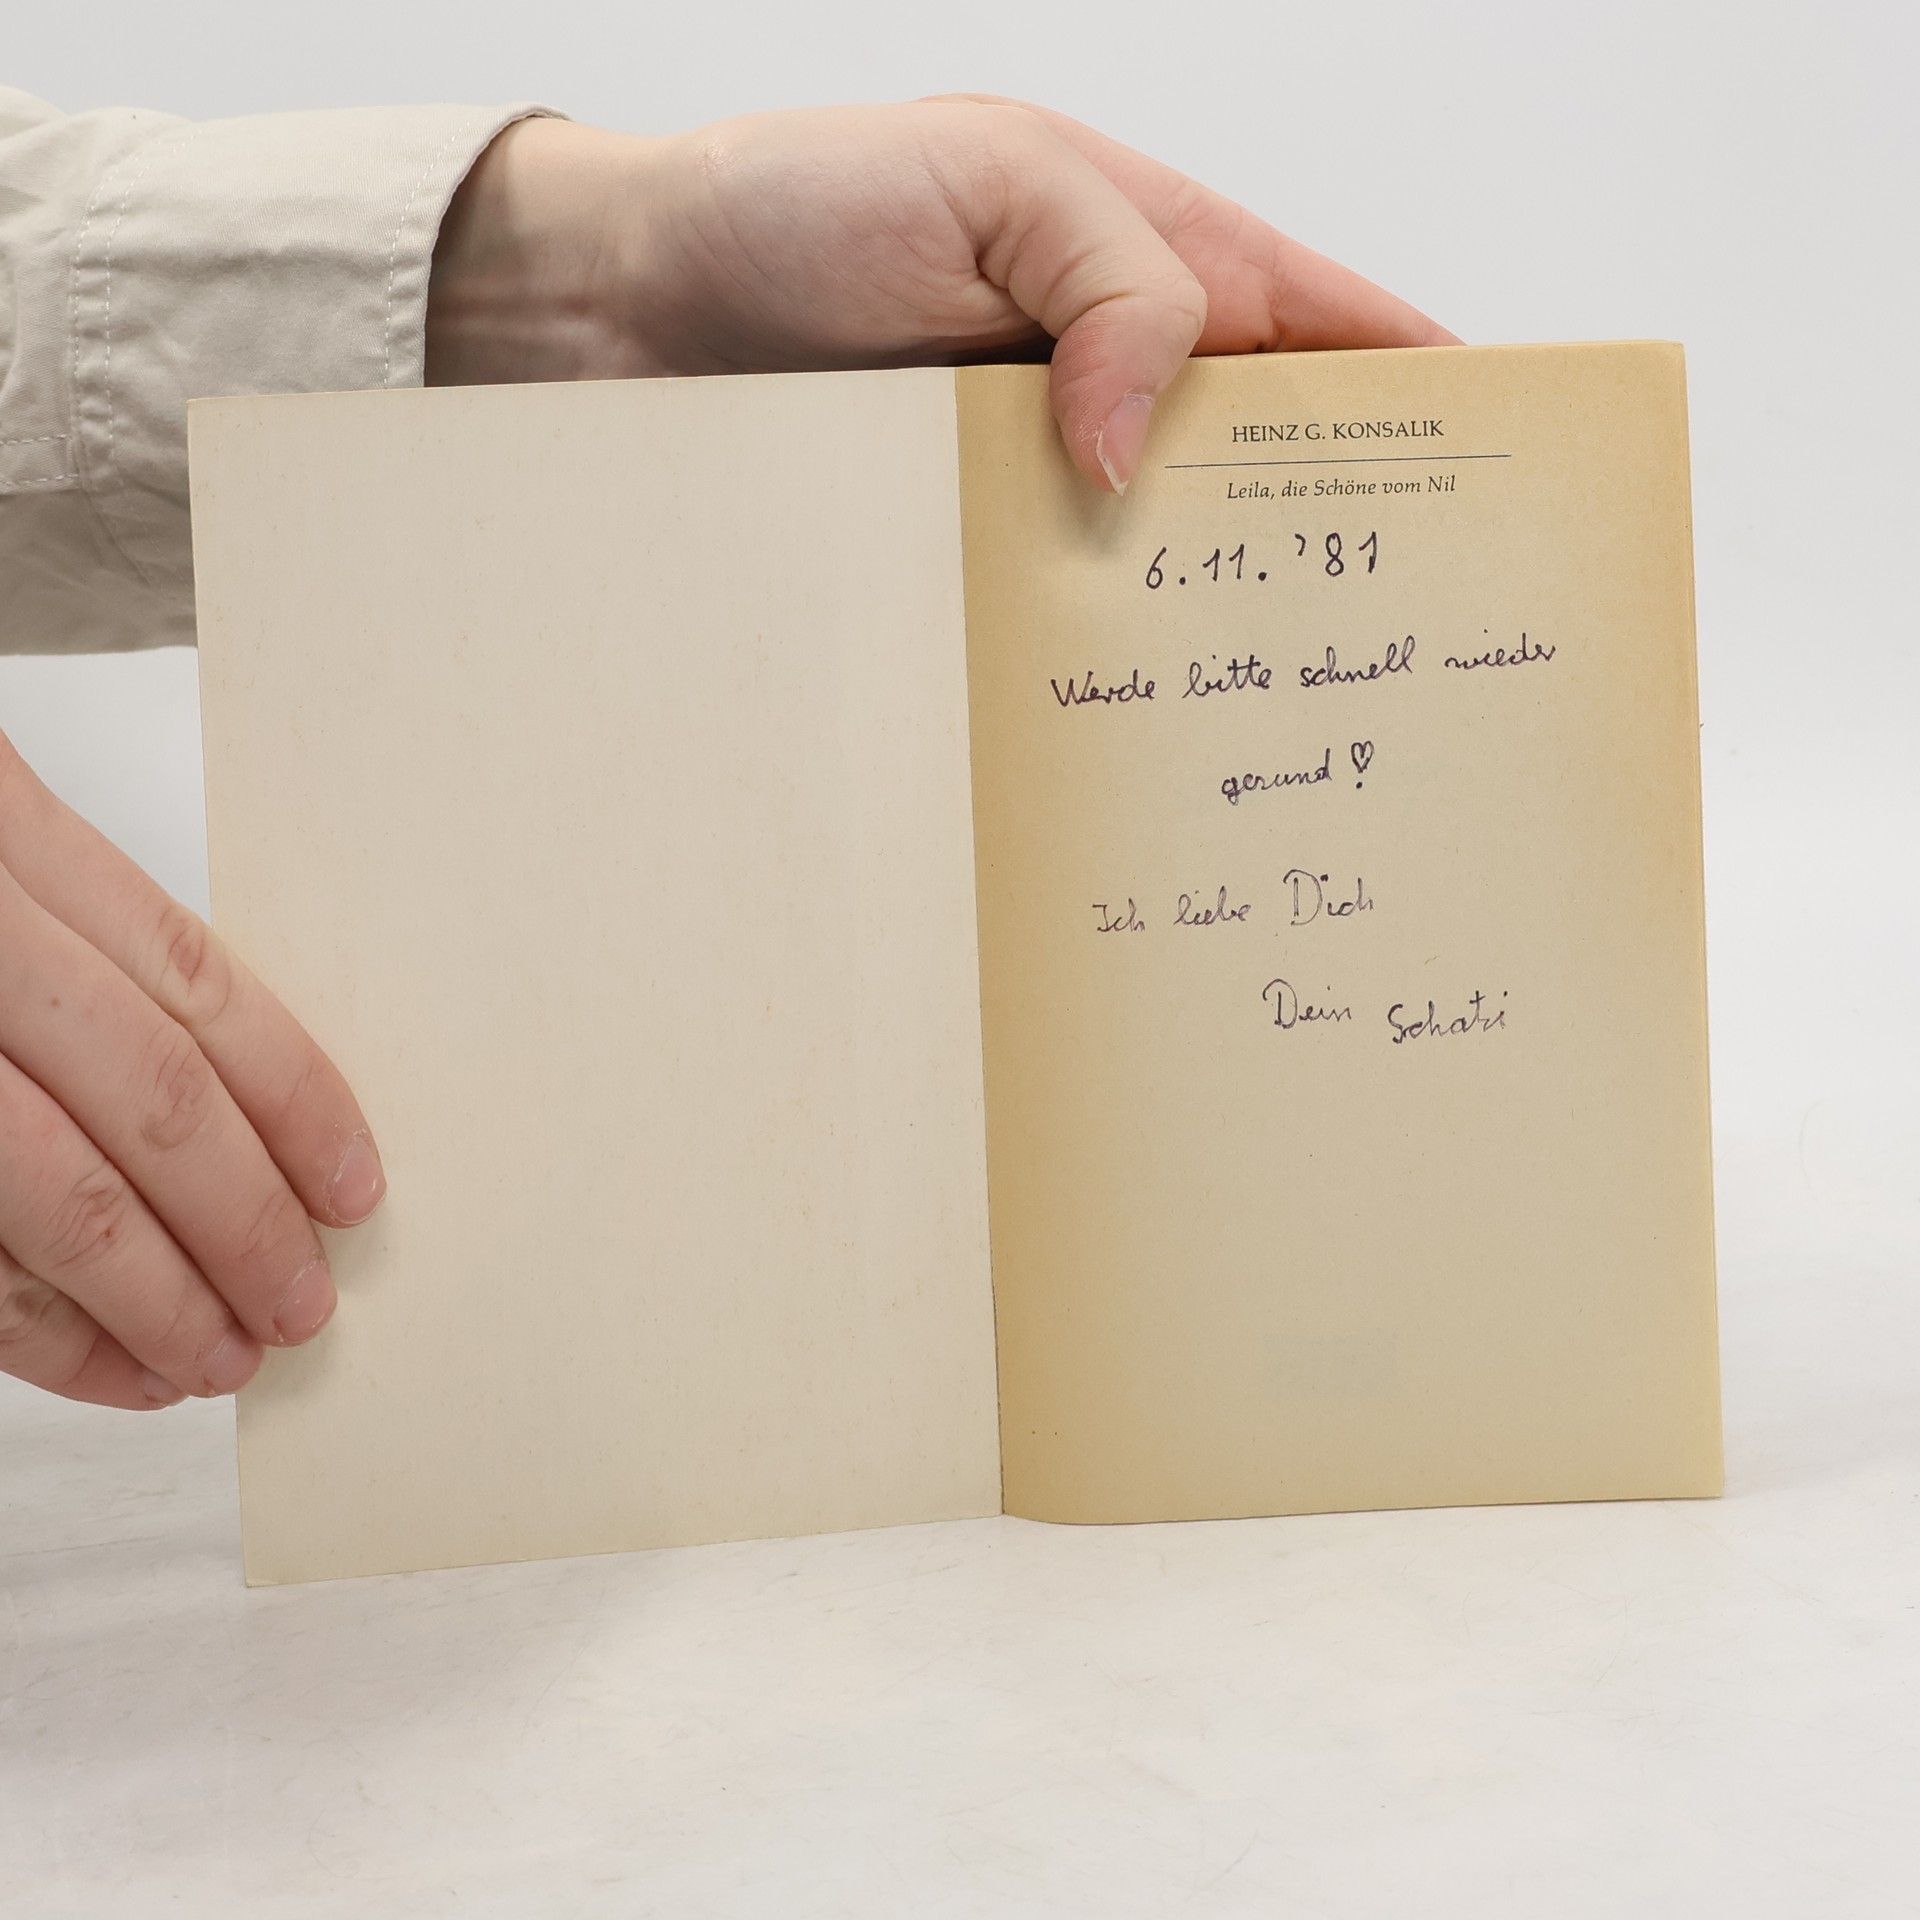 HEINZ G. KONSALIK
Leila, die Schöne vom Nil
6.11.'81
Werde bitte schnell wieder
gesund!
Ich liebe Dich
Dein Schatzi